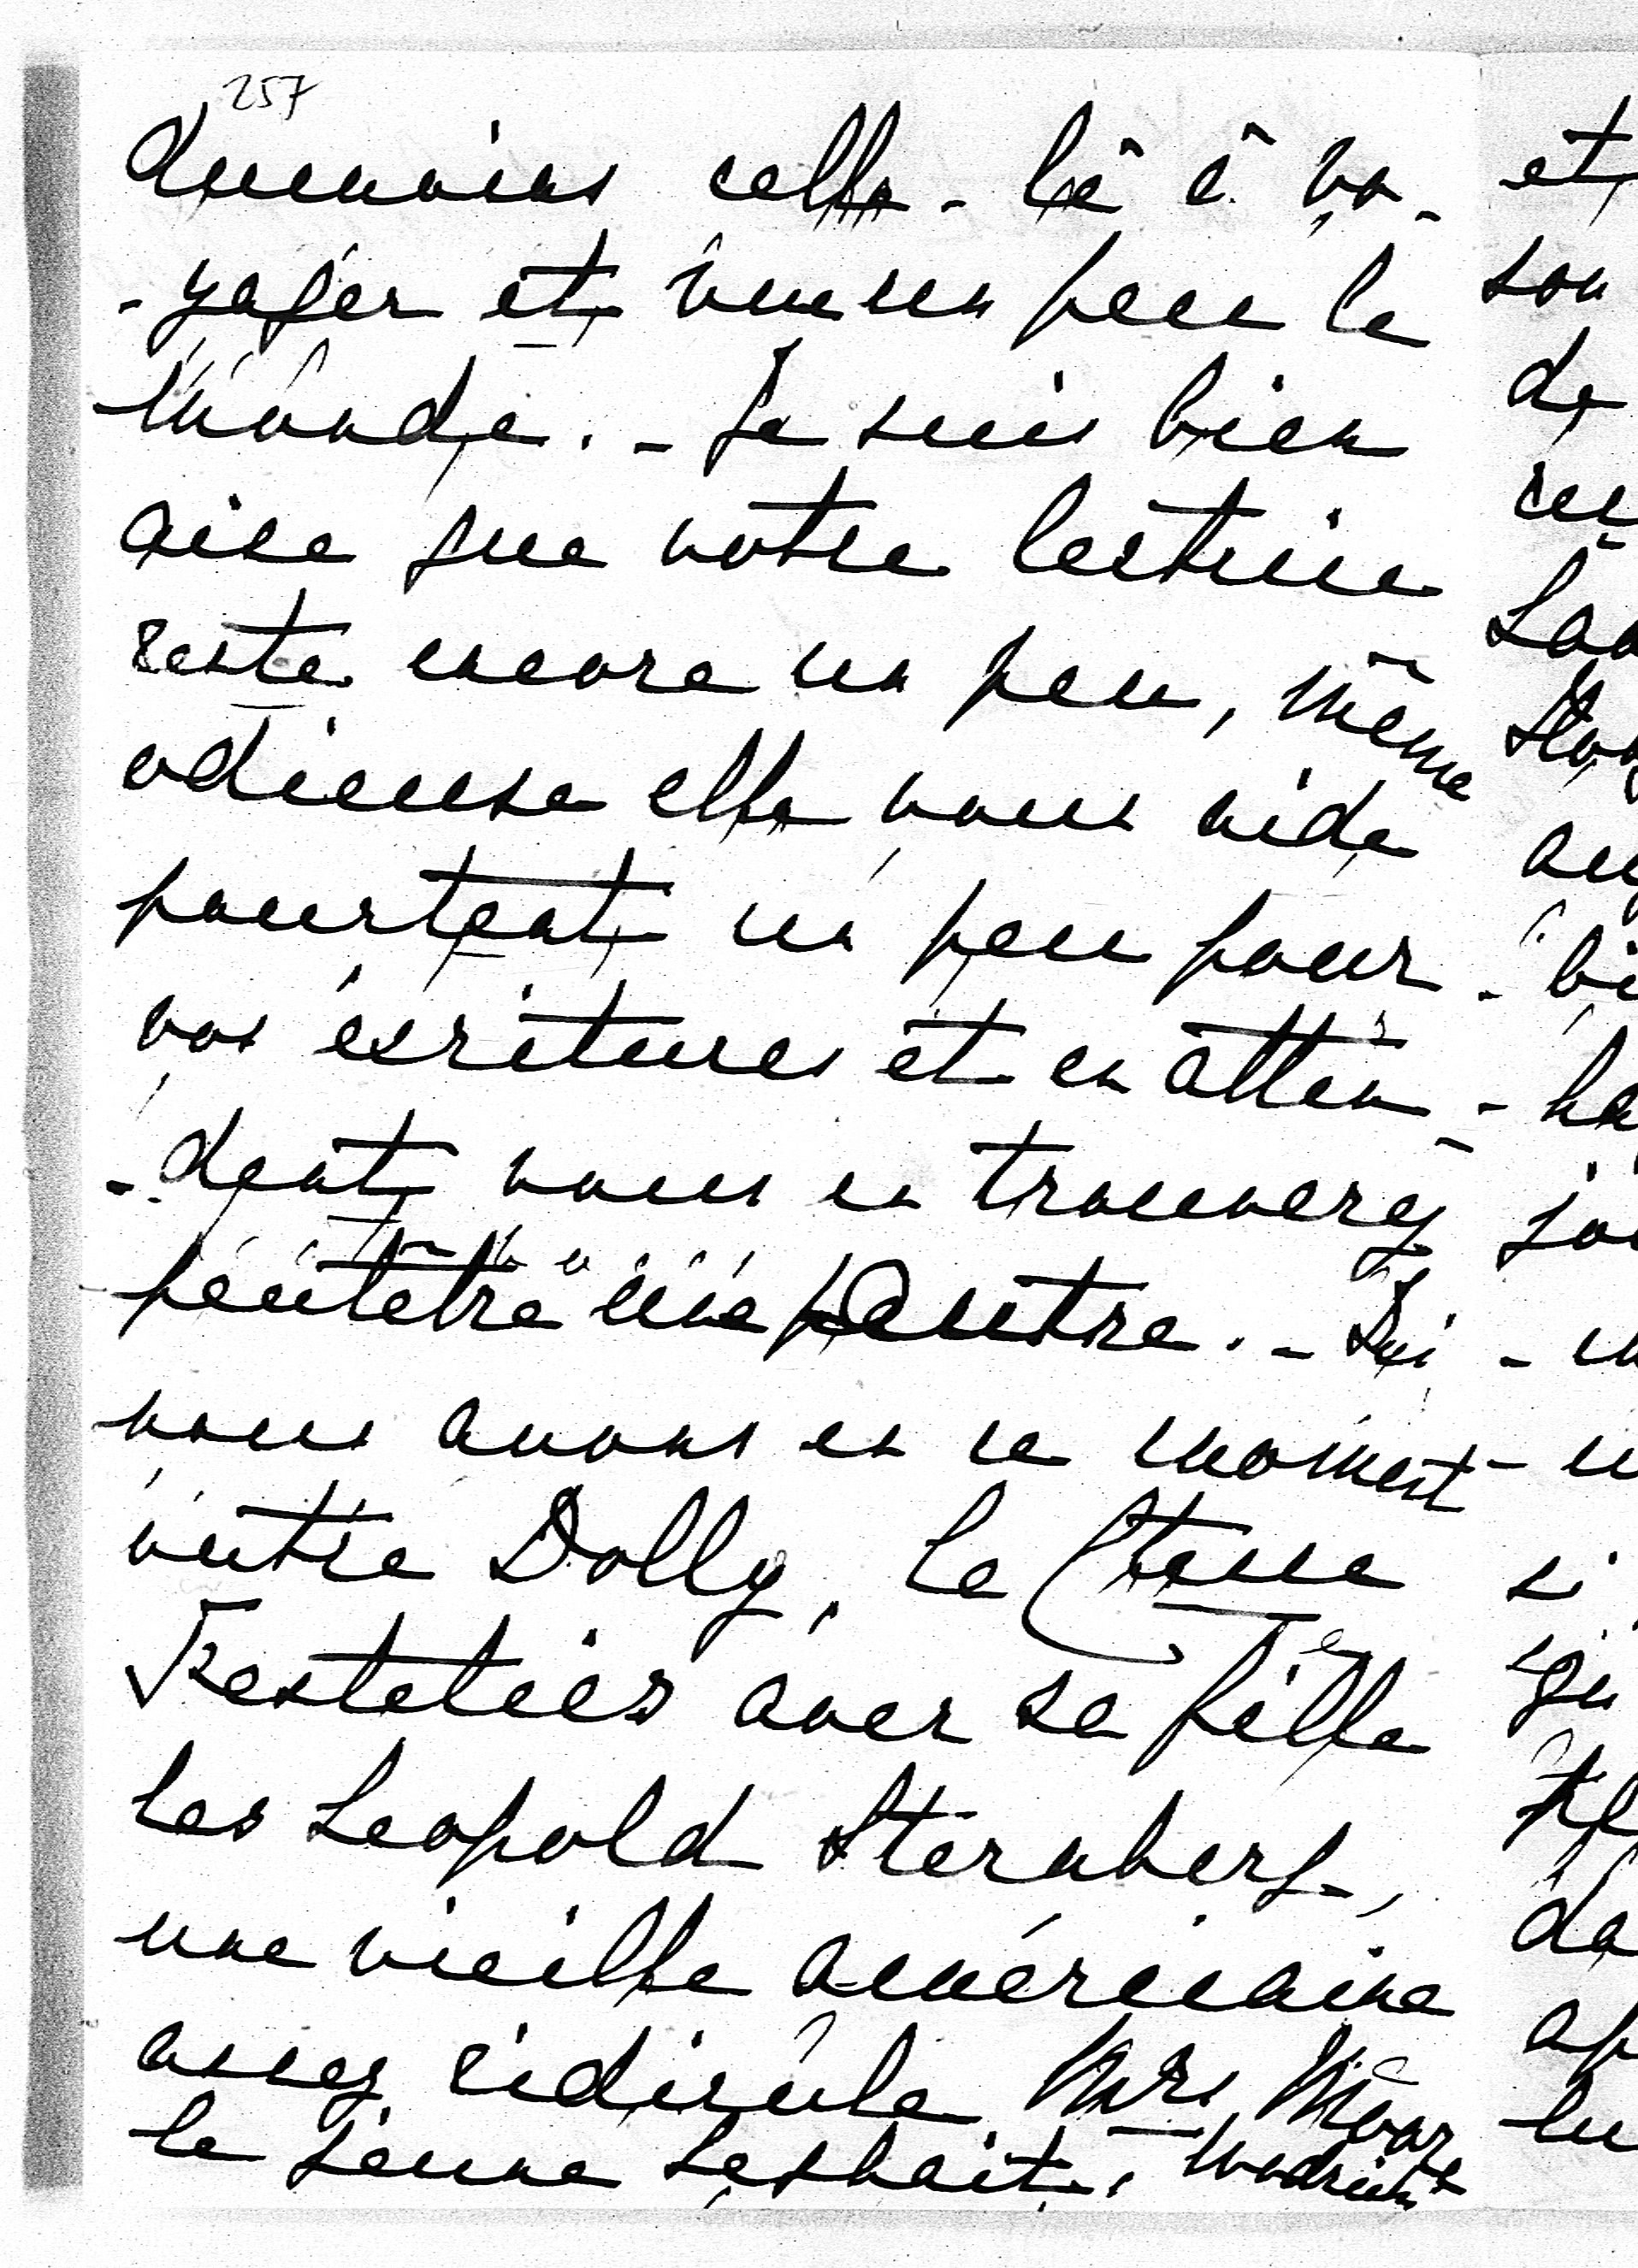 257
dumoins celle-là à vo-
-yager et voir un peu le
monde. - Je suis bien
aise que votre lectrice
reste encore un peu, même
odieuse elle vous aide
pourtant un peu pour
vos écritures et en atten-
-dant vous en trouverez
peutetre une autre. - Ici
nous avons en ce moment
outre Dolly, la Ctesse
Festetics avec sa fille
les Leopold Sternberg,
une vieille américaine
assez ridicule Mrs Moore
le jeune
et
son
de